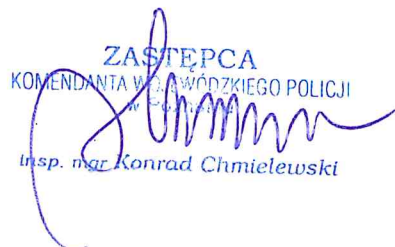 ZASTĘPCA
KOMENDANTA WOJEWÓDZKIEGO POLICJI
w
insp. mgr Konrad Chmielewski